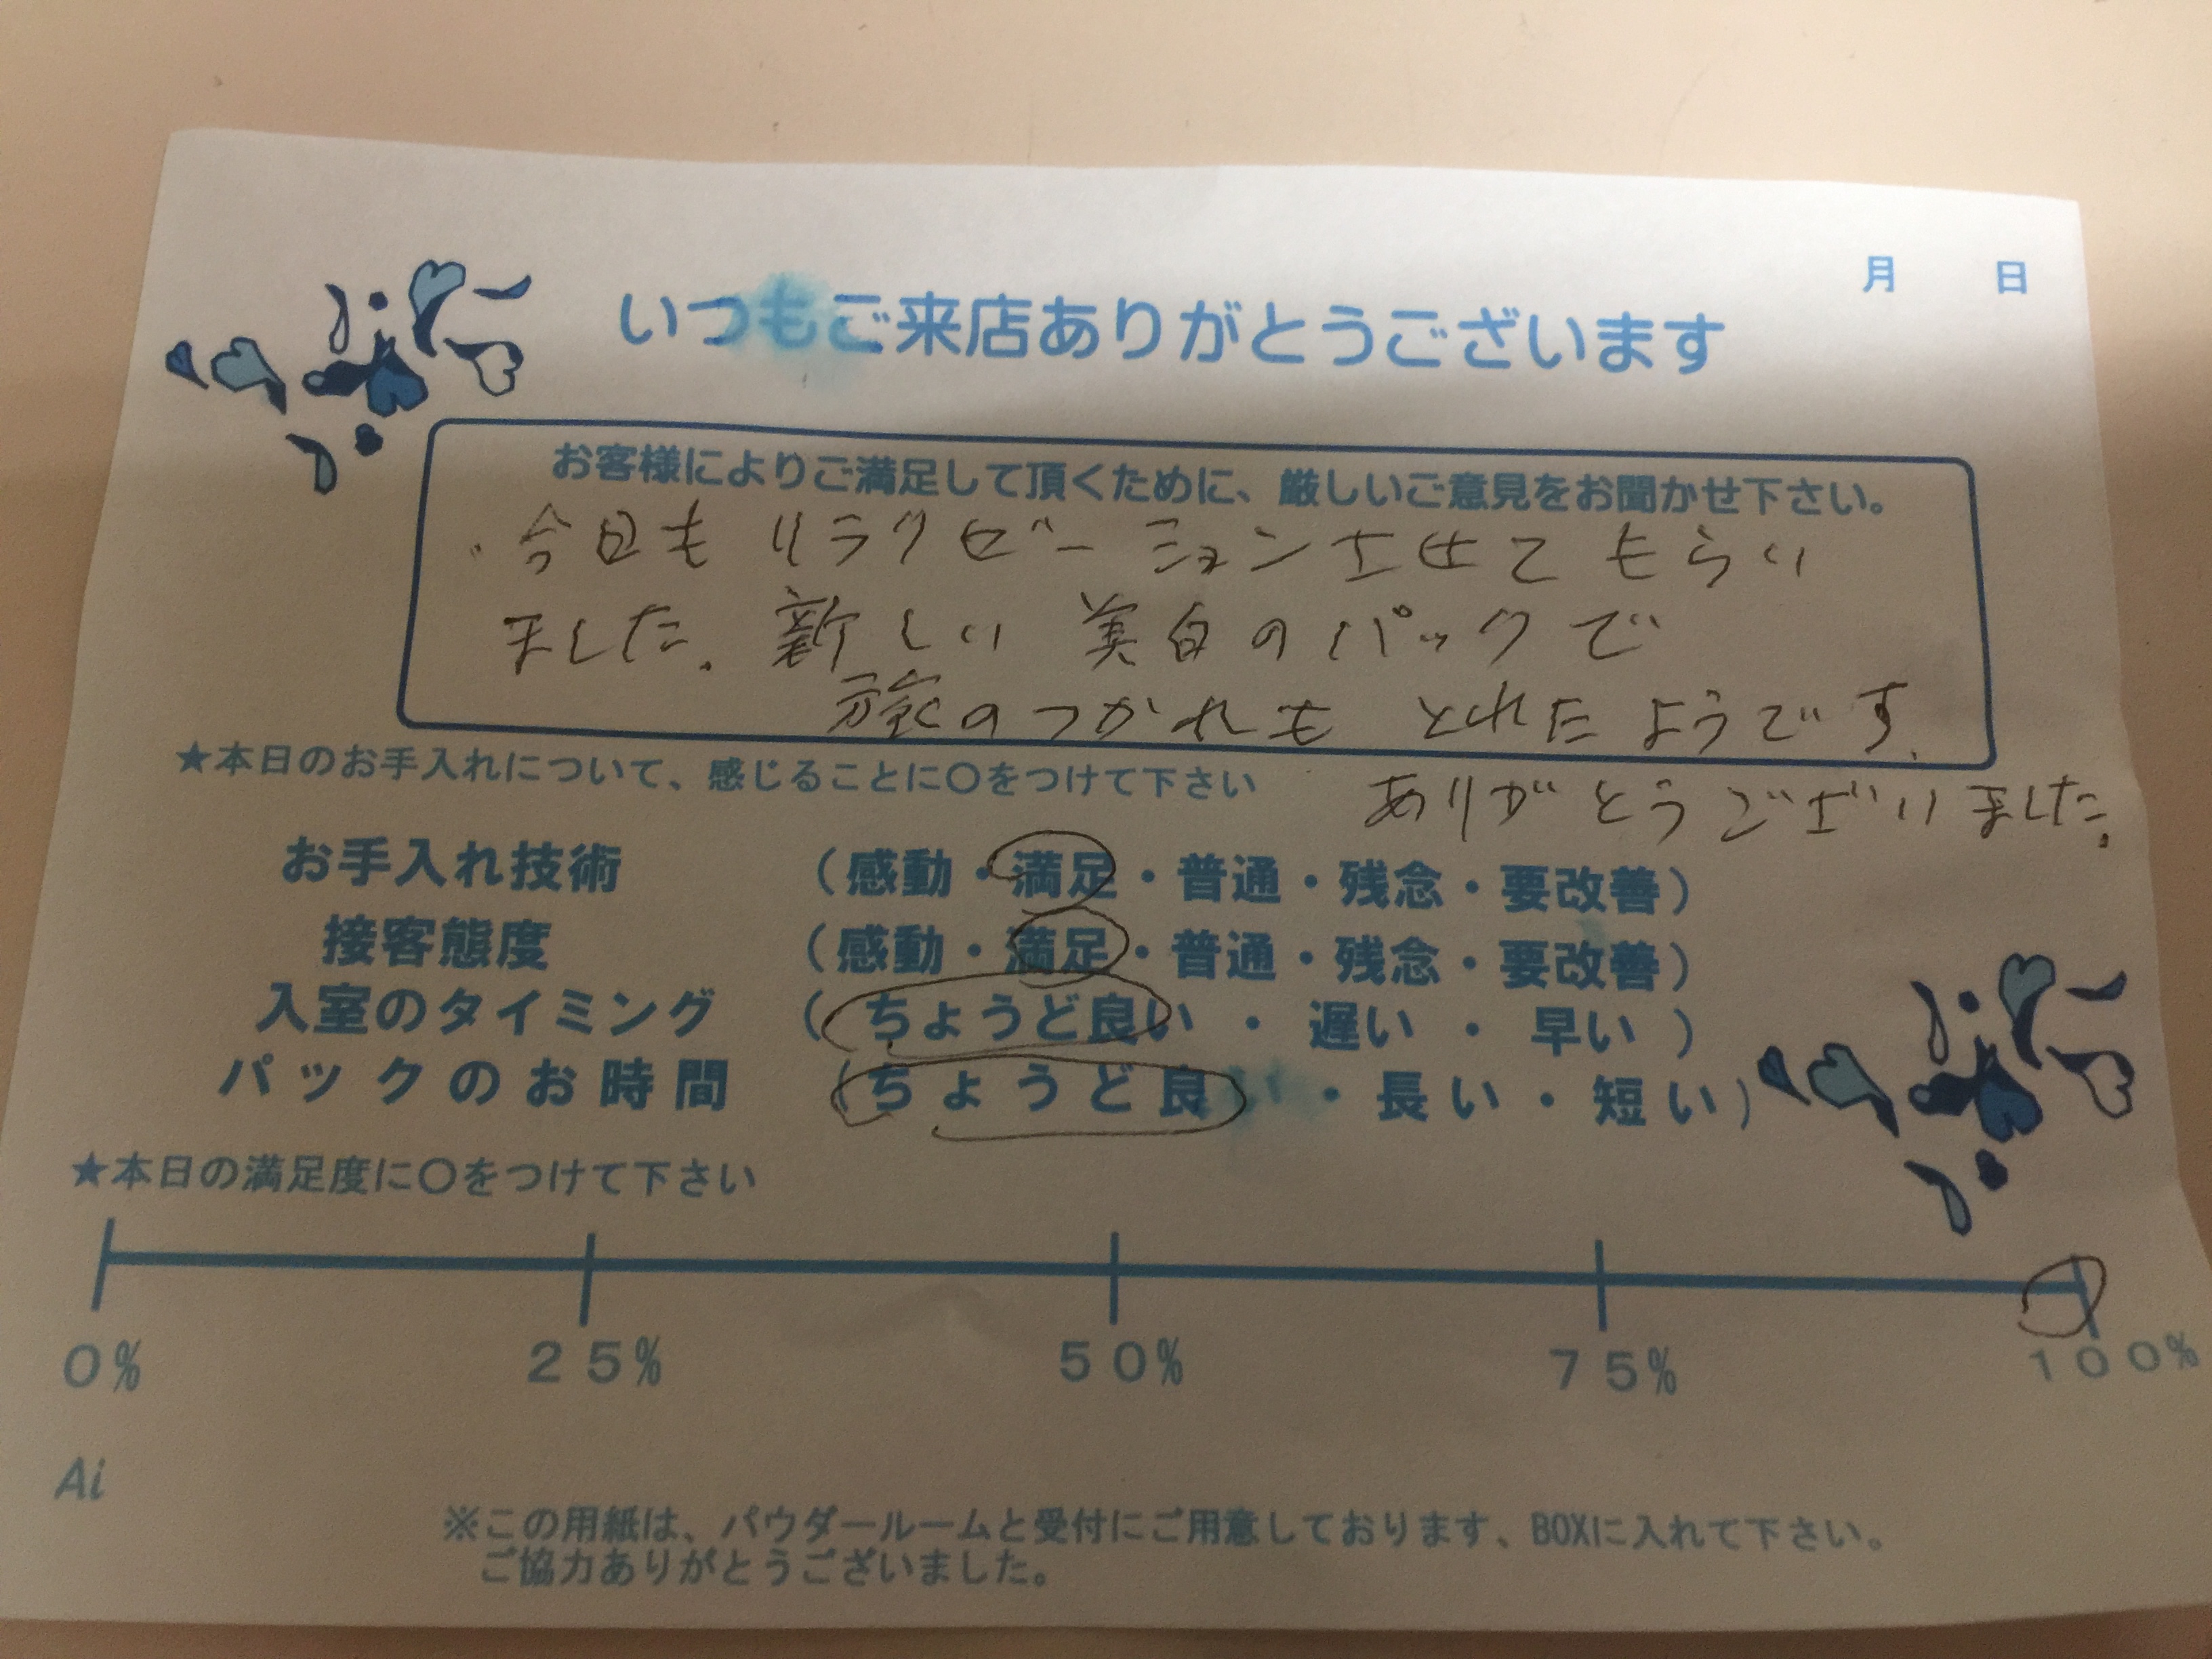 月 日
いつもご来店ありがとうございます
お客様によりご満足して頂くために、厳しいご意見をお聞かせ下さい。
今日もリラクゼーションさせてもらい
ました。新しい美白のパックで
旅のつかれもとれたようです。
★本日のお手入れについて、感じることに〇をつけて下さい
ありがとうございました。
お手入れ技術 (感動・満足・普通・残念・要改善)
接客態度 (感動・満足・普通・残念・要改善)
入室のタイミング (ちょうど良い・遅い・早い)
パックのお時間 (ちょうど良い・長い・短い)
★本日の満足度に〇をつけて下さい
0% 25% 50% 75% 100%
Ai
※この用紙は、パウダールームと受付にご用意しております、BOXに入れて下さい。
ご協力ありがとうございました。